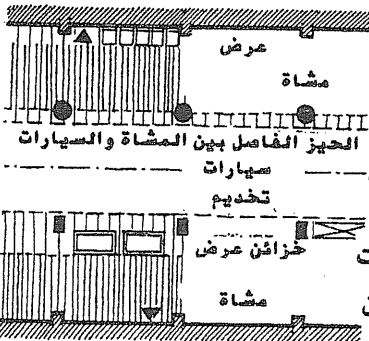 عرض
مشاة
الحيز الفاصل بين المشاة والسيارات
سيارات
تخديم
خزائن عرض
مشاة